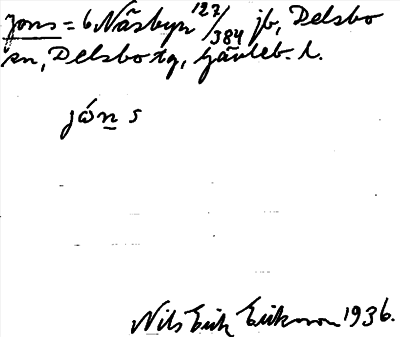 Jons = 6 Näsbyn 122/384 jb, Delsbo
sn, Delsbo tg, Gävleb. l.
jón s
Nils Erik Eriksson 1936.